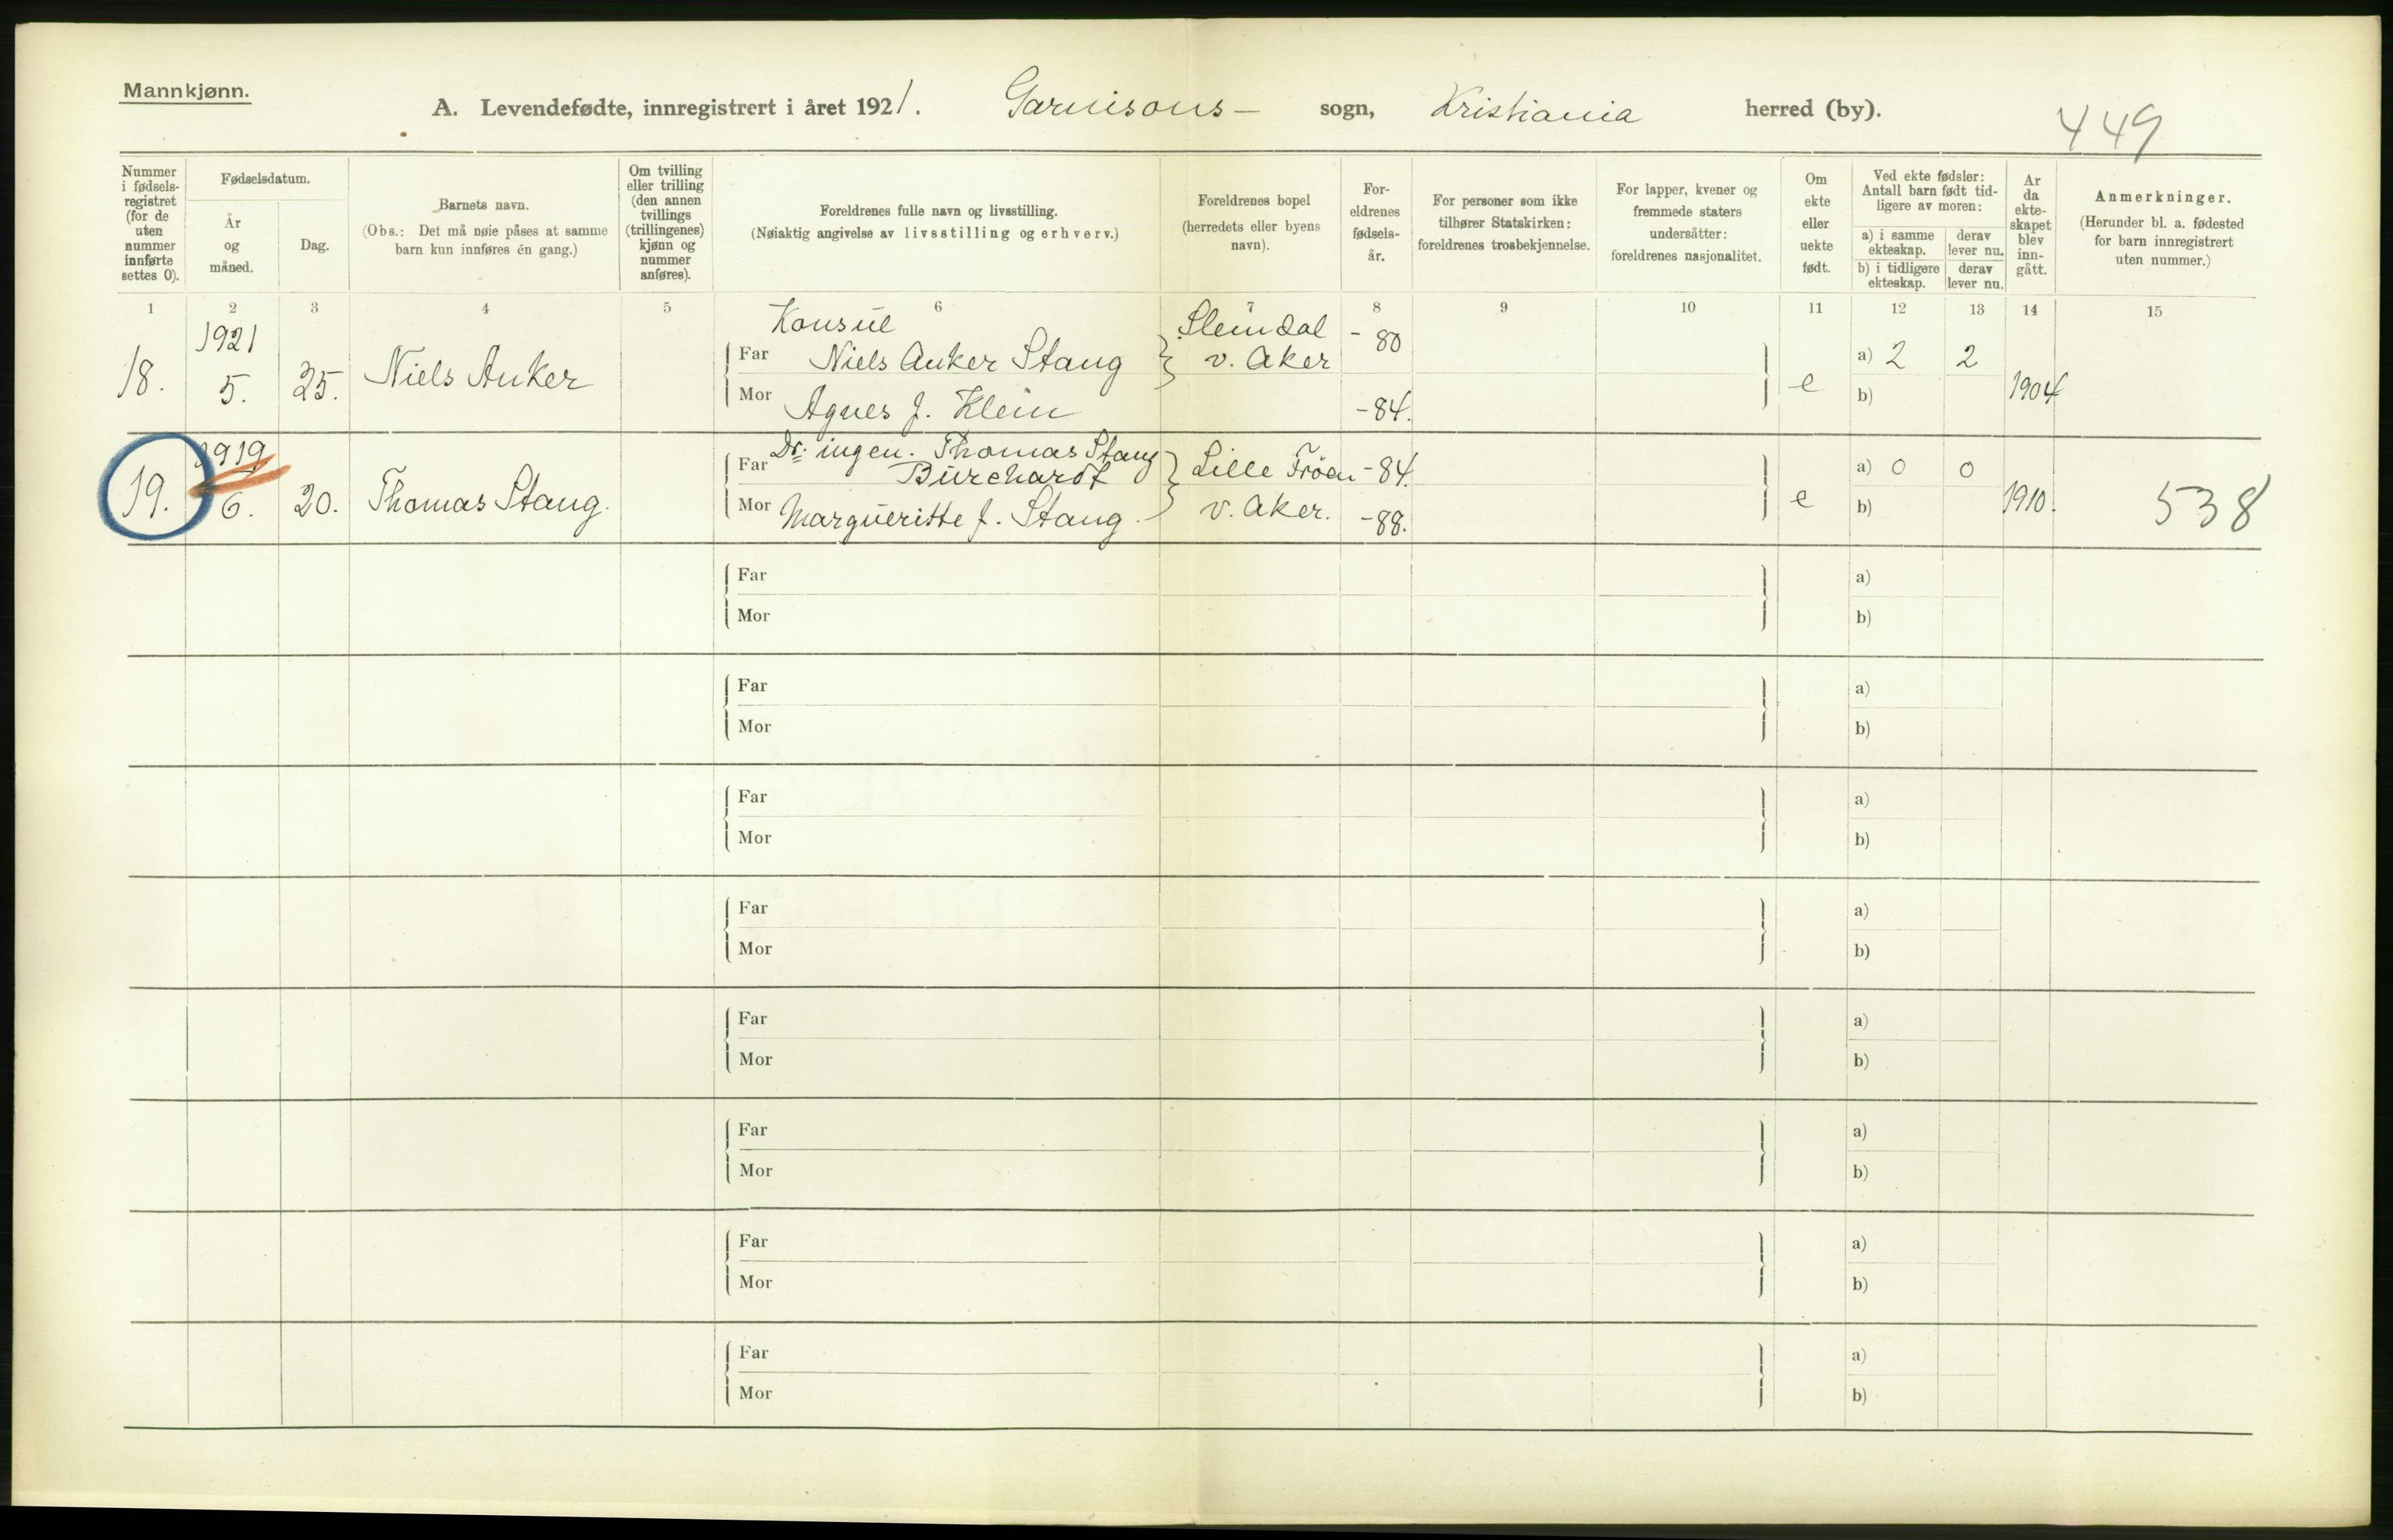 Mannkjønn.
A. Levendefødte, innregistrert i året 1921. Garnisons- sogn, Kristiania herred (by).
449
Nummer i fødsels- registret (for de uten nummer innførte settes 0).
Fødselsdatum.
År og måned.
Dag.
Barnets navn.
(Obs.: Det må nøie påses at samme barn kun innføres én gang.)
Om tvilling eller trilling (den annen tvillings (trillingenes) kjønn og nummer anføres).
Foreldrenes fulle navn og livsstilling.
(Nøiaktig angivelse av livsstilling og erhverv.)
Foreldrenes bopel (herredets eller byens navn).
For- eldrenes fødsels- år.
For personer som ikke tilhører Statskirken: foreldrenes trosbekjennelse.
For lapper, kvener og fremmede staters undersåtter: foreldrenes nasjonalitet.
Om ekte eller uekte født.
Ved ekte fødsler: Antall barn født tid- ligere av moren:
a) i samme ekteskap.
derav lever nu.
b) i tidligere ekteskap.
derav lever nu.
År da ekte- skapet blev inn- gått.
Anmerkninger.
(Herunder bl. a. fødested for barn innregistrert uten nummer.)
1 2 3 4 5 6 7 8 9 10 11 12 13 14 15
18. 1921 5. 25. Niels Anker
Konsul
Far Niels Anker Stang
Mor Agnes f. Klein
Slemdal
v. Aker
- 80
- 84.
e
a) 2 2
b)
1904
19. 1919 6. 20. Thomas Stang.
Dr. ingen. Thomas Stang
Far Burchardt
Mor Margueritte f. Stang.
Lille Frøen
v. Aker.
- 84.
- 88.
e
a) 0 0
b)
1910.
538
Far a)
Mor b)
Far a)
Mor b)
Far a)
Mor b)
Far a)
Mor b)
Far a)
Mor b)
Far a)
Mor b)
Far a)
Mor b)
Far a)
Mor b)